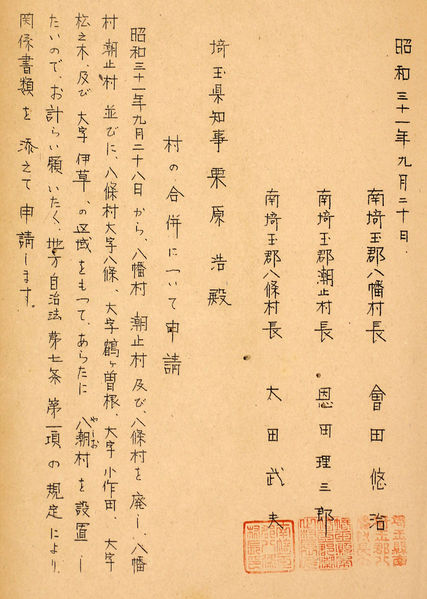 昭和三十一年九月二十日
南埼玉郡八幡村長 會田悠治
南埼玉郡潮止村長 恩田理三郎
南埼玉郡八條村長 太田武夫
埼玉県知事 栗原浩殿
村の合併について申請
昭和三十一年九月二十八日から、八幡村 潮止村 及び、八條村を廃し、八幡
村 潮止村 並びに、八條村大字八條、大字鶴ヶ曽根、大字小作田、大字
松之木、及び 大字伊草、の区域をもつて、あらたに 八潮村を設置し
やしお
たいので、お計らい願いたく、地方自治法 第七条 第一項の規定により、
関係書類を添えて申請します。